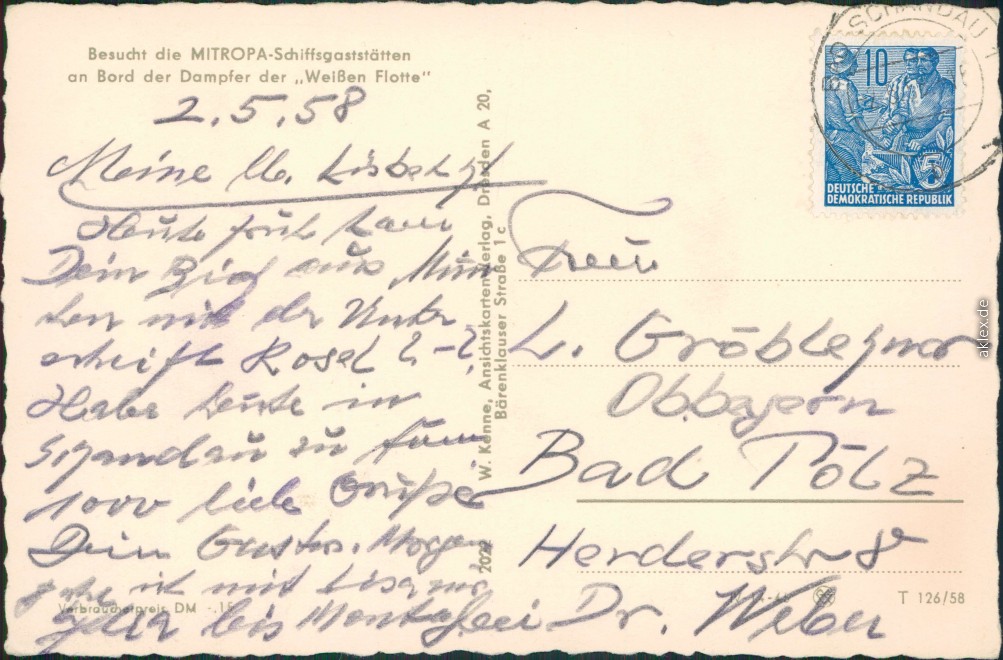 Besucht die MITROPA-Schiffsgaststätten
an Bord der Dampfer der „Weißen Flotte"
2.5.58
Meine lb.
Heute früh kam
Dein aus Mün
chen mit der Unter
schrift Rosel ?-?
Habe heute in
Schandau zu tun
1000 liebe Grüße
Dein Gustav. Morgen
gehe ich mit
bis Montag bei
Verbraucherpreis DM -.15
2022 W. Kenne, Ansichtskarten-Verlag, Dresden A 20,
Bärenklauser Straße 1 c
BAD SCHANDAU 1
10
5
DEUTSCHE
DEMOKRATISCHE REPUBLIK
Frau
L.
Obbayern
Bad Tölz
Herderstr 8
Dr. Weber
T 126/58
aklex.de